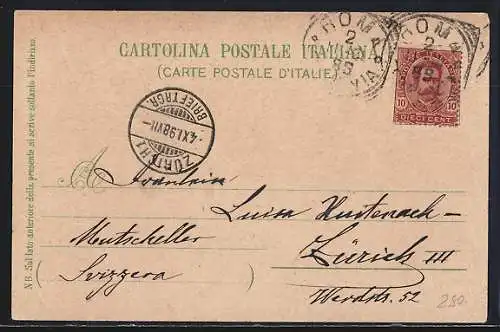 CARTOLINA POSTALE ITALIANA
(CARTE POSTALE D'ITALIE)
ROMA
2
ROMA
2
10 10
DIECI CENT.
ZÜRICH 1
-4.XI.98.VII-
BRIEFTRGR.
NB. Sul lato anteriore della presente si scrive soltanto l'indirizzo
Fräulein
Luisa Hustenach-
Mutscheller
Zürich III
(Svizzera)
Werdstr. 52
280.